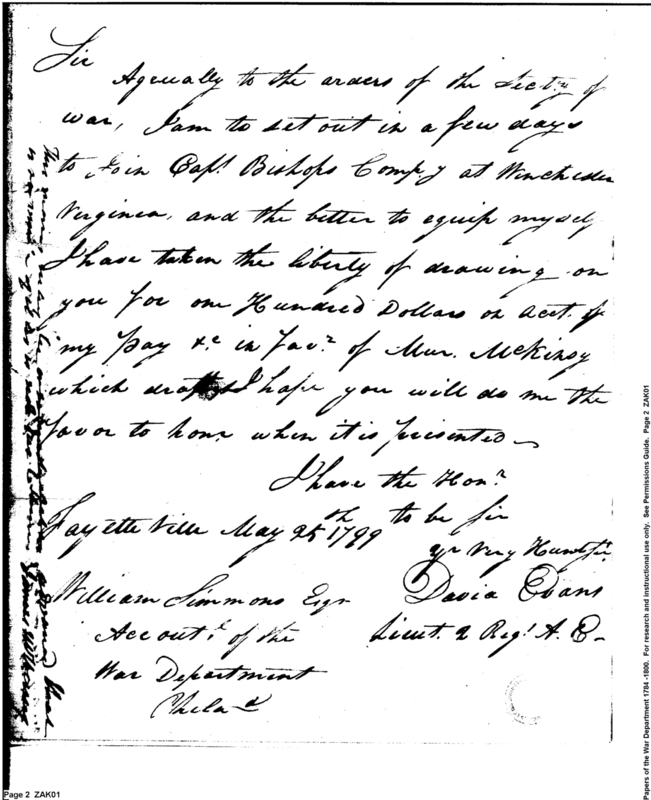 Sir
Agreually to the orders of the Secty of
war, I am to set out in a few days
to Join Capt. Bishops Compy at Winchester
Virginea, and the better to equip myself
I have taken the liberty of drawing on
you for one Hundred Dollars on acct. of
my Pay &c in favr of Mur. McKinsy
which draft I hope you will do me the
favor to honr when it is presented
I have the Honr
to be Sir
Fayette Ville May 25th 1799
yr Very Humbl Sr
David Evans
Lieut. 2 Regt A. E
William Simmons Esqr
Accoutt of the
War Department
Philad
Page 2 ZAK01
Papers of the War Department 1784 -1800. For research and instructional use only. See Permissions Guide. Page 2 ZAK01